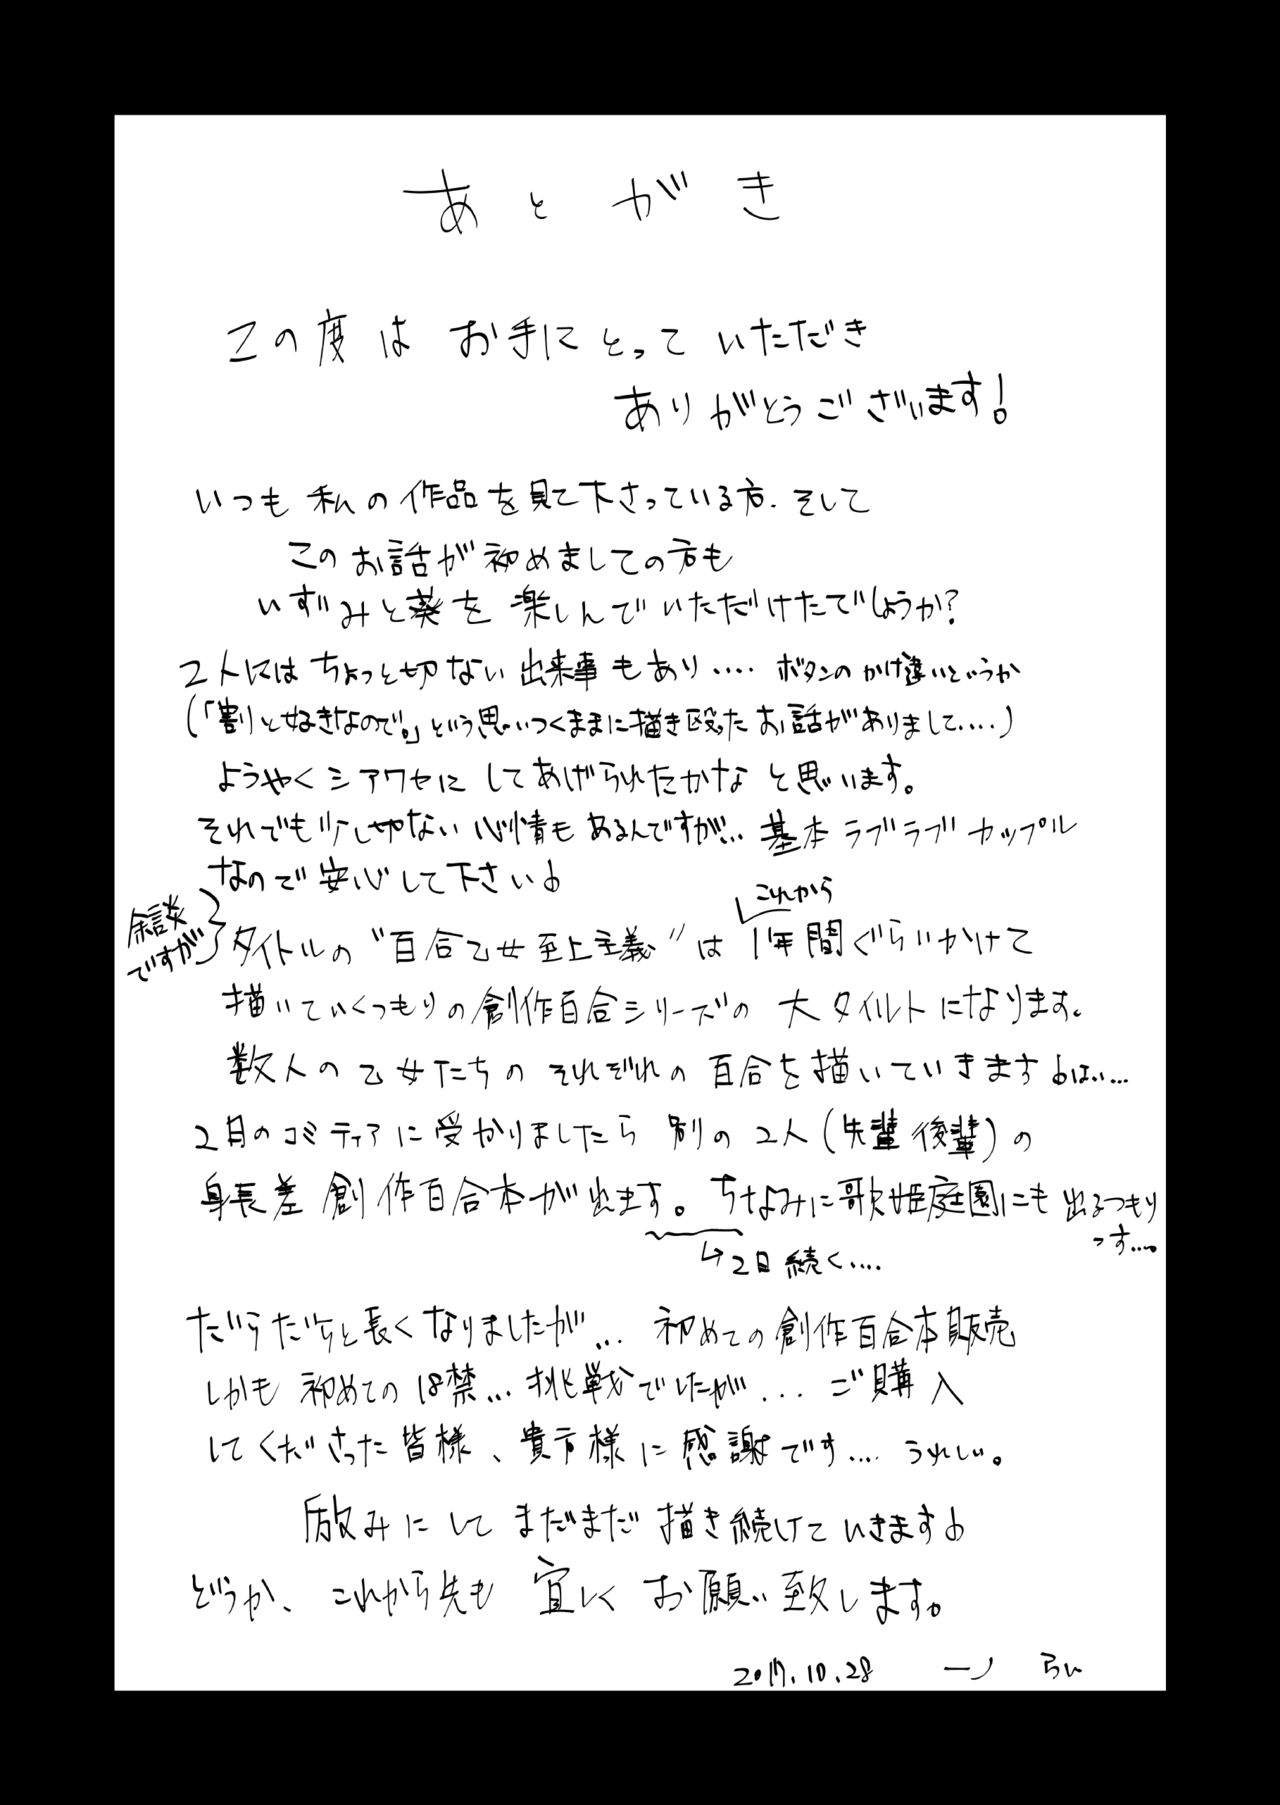 あとがき
この度は お手にとって いただき
ありがとうございます!
いつも 私の作品を見て下さっている方.そして
このお話が初めましての方も
いずみと葵を楽しんでいただけたでしょうか?
2人にはちょっと切ない出来事もあり.... ボタンのかけ違いというか
(「割と好きなので。」という思いつくままに描き殴ったお話がありまして....)
ようやくシアワセにしてあげられたかなと思います。
それでも少し切ない心情もあるんですが... 基本ラブラブカップル
なので安心して下さい♪
余談ですが
これから
タイトルの“百合乙女至上主義”は1年間ぐらいかけて
描いていくつもりの創作百合シリーズの 大タイルトになります。
数人の乙女たちのそれぞれの百合を描いていきます♪はい...
2月のコミティアに受かりましたら 別の2人(先輩後輩)の
身長差創作百合本が出ます。ちなみに歌姫庭園にも出るつもり
っす....
↳2日続く....
だらだらと長くなりましたが... 初めての創作百合本販売
しかも初めての18禁... 挑戦でしたが... ご購入
してくださった皆様、貴方様に感謝です... うれしい。
励みにして まだまだ描き続けていきます♪
どうか、これから先も 宜しくお願い致します。
2017.10.28 一ノ らい